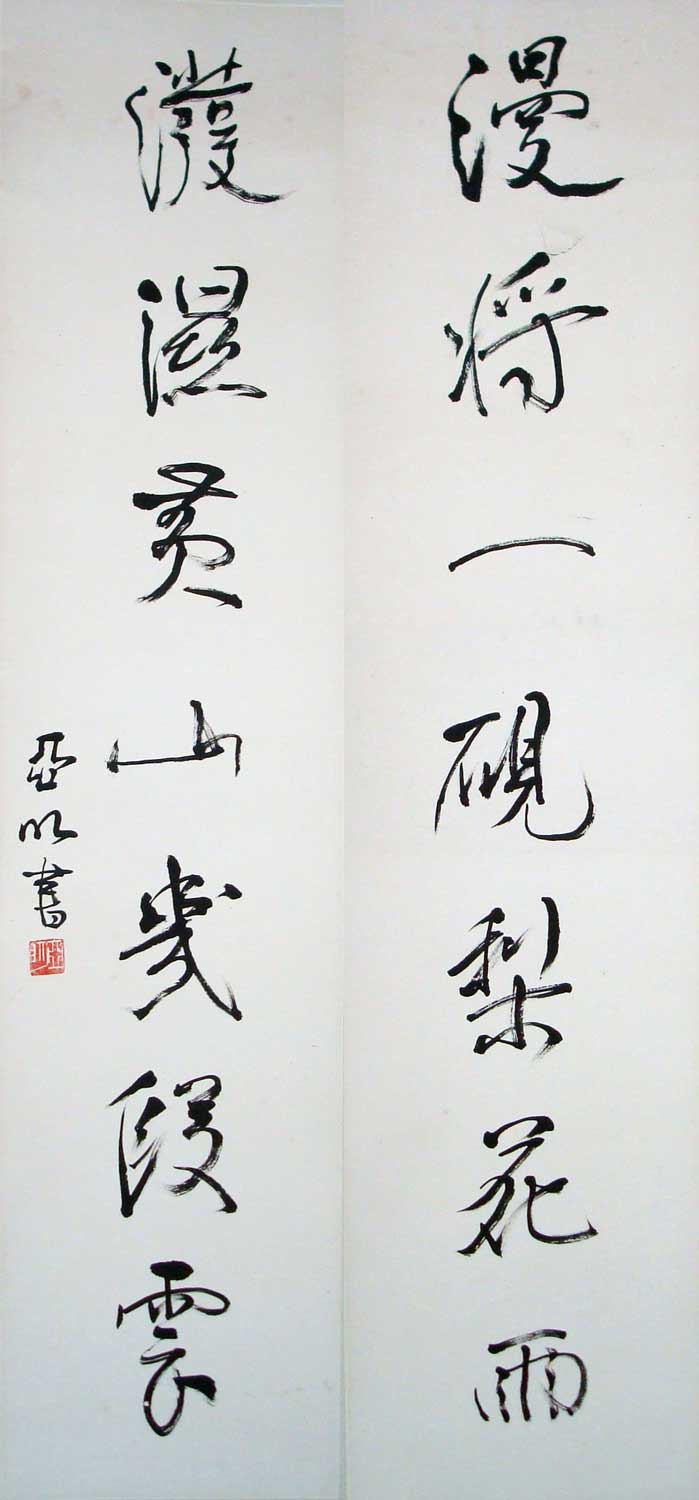 漫将一硯梨花雨
潑濕黄山幾段雲
亞明書